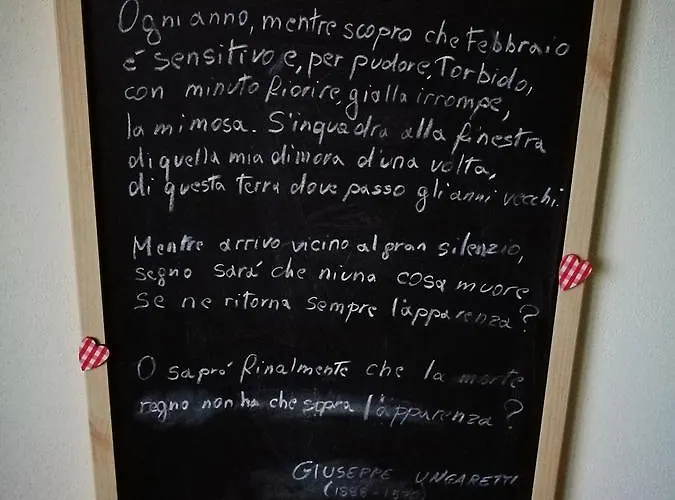 Ogni anno, mentre scopro che Febbraio
é sensitivo e, per pudore, Torbido,
con minuto fiorire, gialla irrompe,
la mimosa. S'inquadra alla finestra
di quella mia dimora d'una volta,
di questa terra dove passo gli anni vecchi.
Mentre arrivo vicino al gran silenzio,
segno sará che niuna cosa muore
se ne ritorna sempre l'apparenza?
O sapró finalmente che la morte
regno non ha che sopra l'apparenza?
GIUSEPPE UNGARETTI
(1888-1970)